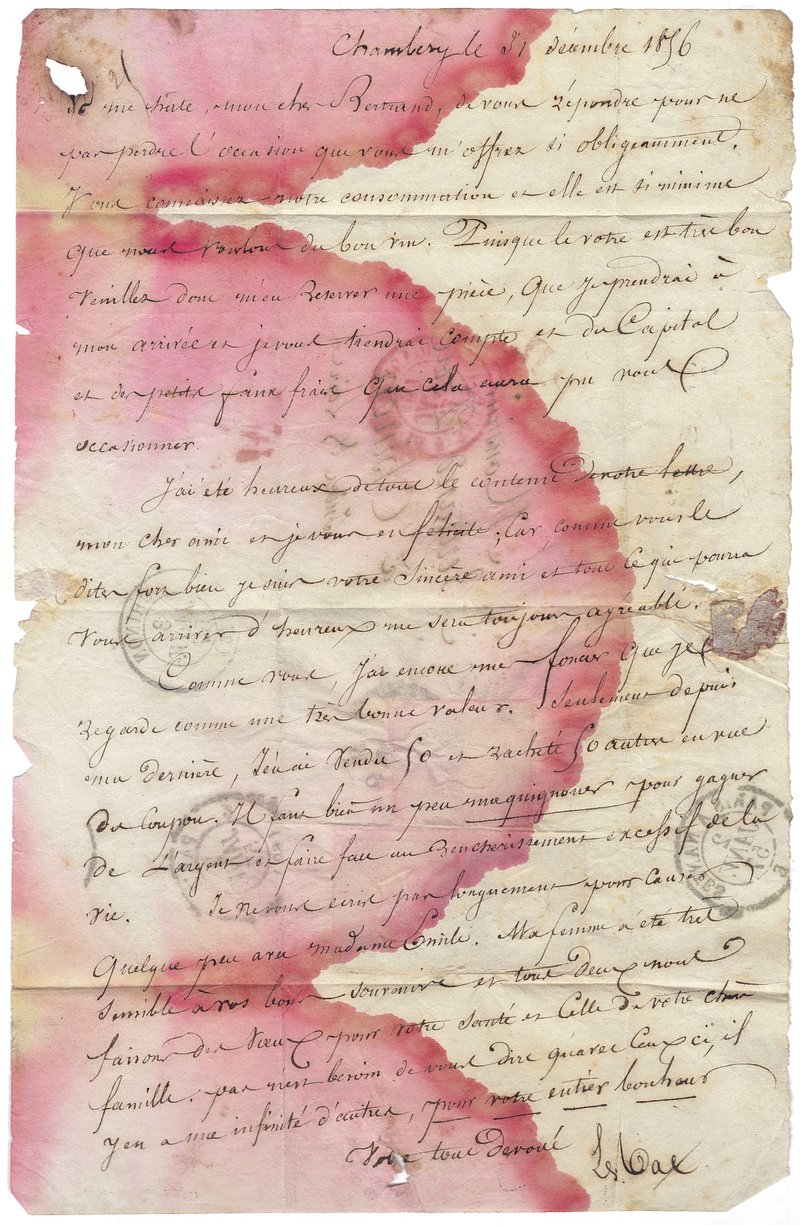 Chambéry le 31 décembre 1856
Je me hâte, mon cher Bertrand, de vous répondre pour ne
pas perdre l'occasion que vous m'offrez si obligeamment.
Vous connaissez notre consommation et elle est si minime
que nous voulons du bon vin. Puisque le votre est très bon
Veuillez donc m'en Reserver une pièce, que je prendrai à
mon arrivée et je vous tiendrai compte et du Capital
et des petits faux frais que cela aura pu vous
occasionner.
J'ai été heureux de tout le contenu de votre lettre,
mon cher ami et je vous en félicite; Car, comme vous le
dites fort bien je suis votre Sincère ami et tout ce que pourra
Vous arriver d'heureux me sera toujours agréable.
Comme vous, J'ai encore me fonciers que je
regarde comme une très bonne valeur. Seulement depuis
ma dernière, J'en ai Vendu 50 et racheté 50 autres en vue
du Coupon. Il faut bien un peu maquignoner pour gagner
de L'argent et faire face au Rencherissement excessif de la
vie. Je ne vous écris pas longuement pour causer
Quelque peu avec madame Emile. Ma femme a été très
Sensible à vos bons souvenirs et tous deux nous
faisons des Voeux pour votre Santé et Celle de votre chère
famille. pas n'est besoin de vous dire qu'avec Ceux ci, il
y en a une infinité d'autres, pour votre entier bonheur
Votre tout devoué